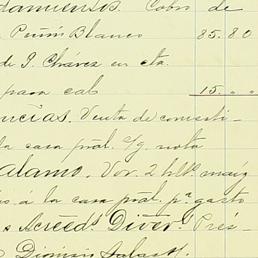 damiensos. Cobro de
Piñón Blanco 85.80
de J. Chávez en cta.
para cal 15.
ncias. Venta de comesti-
la casa pral. c/g. nota
alamo. Vor. 2 hlts maíz
á la casa pral. pª gasto
s Acreeds. Divers. Prés-
Dionisio Salas